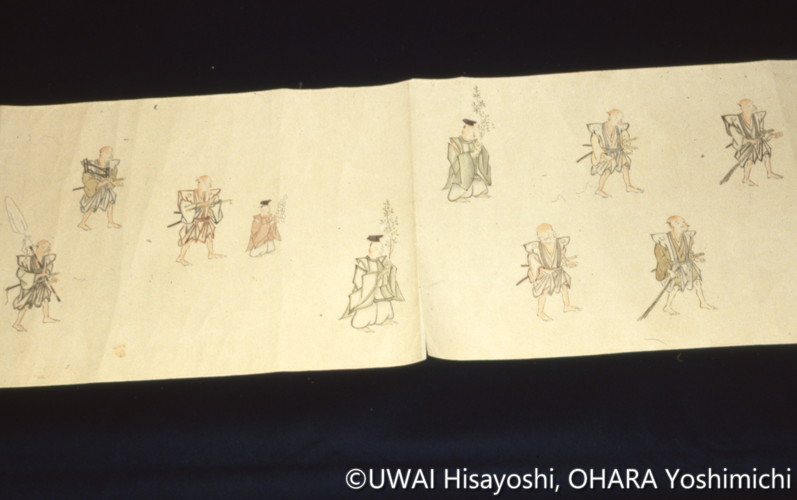 ©UWAI Hisayoshi, OHARA Yoshimichi